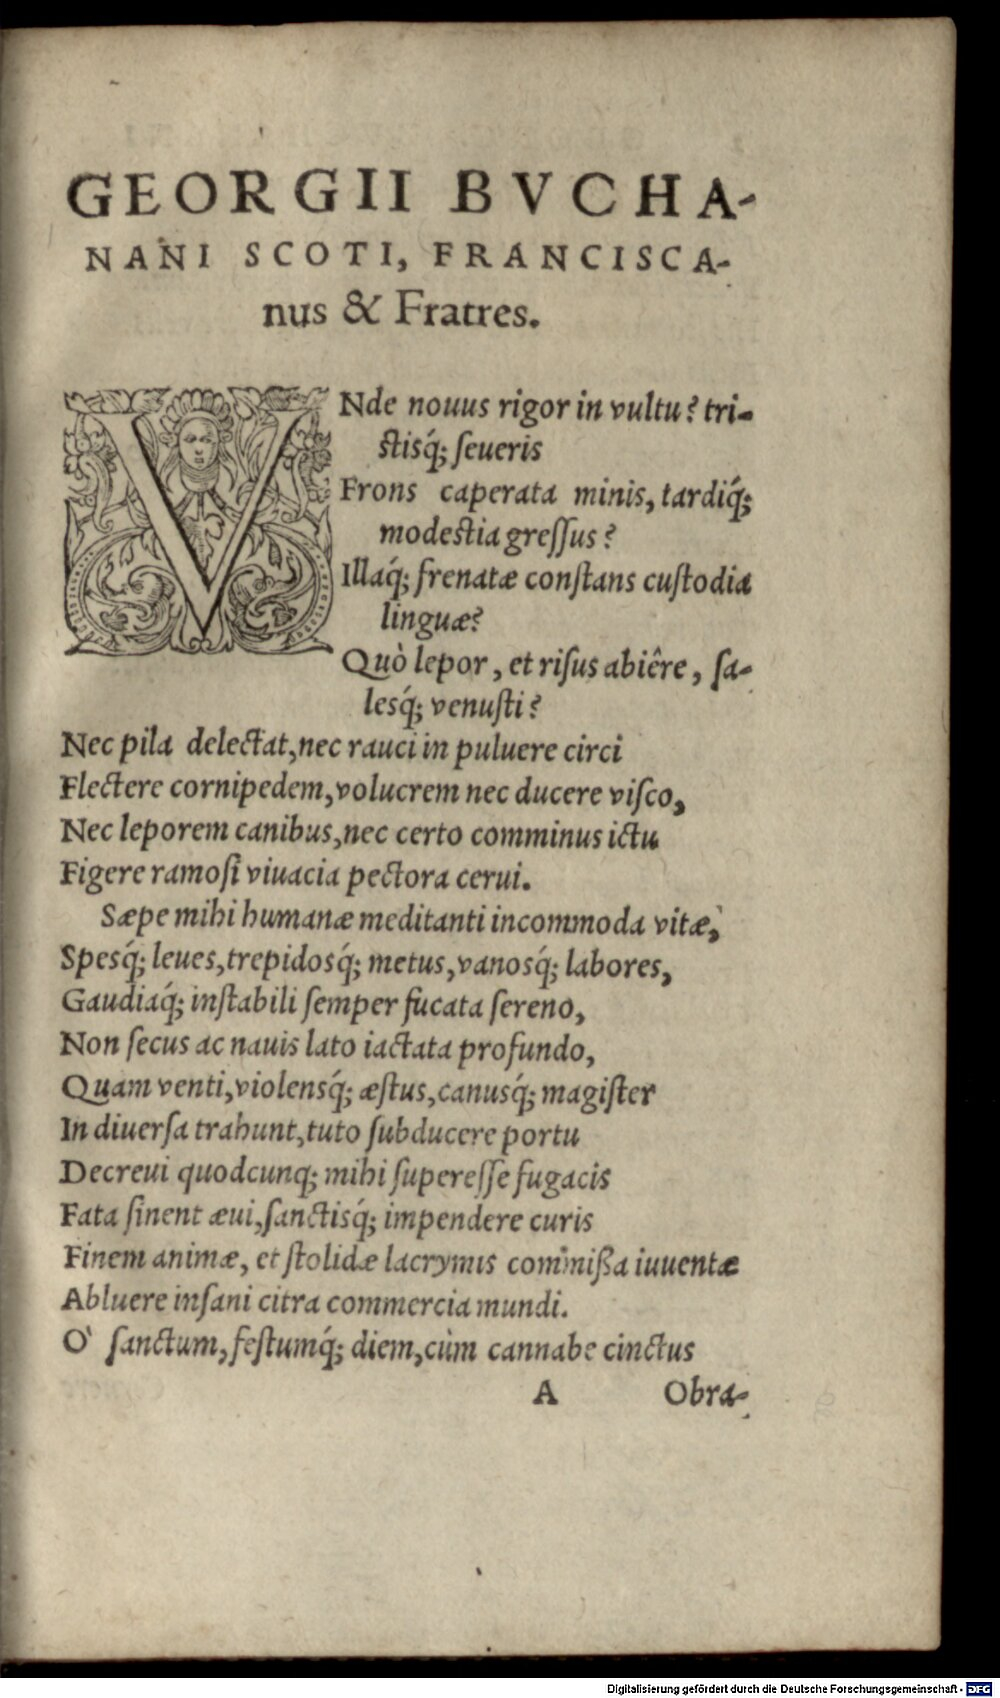 GEORGII BVCHA-
NANI SCOTI, FRANCISCA-
nus & Fratres.
VNde nouus rigor in vultu? tri-
stisq́; ſeueris
Frons caperata minis, tardiq́;
modestia greſſus?
Illaq́; frenatæ conſtans cuſtodia
linguæ?
Quò lepor, et riſus abiêre, ſa-
lesq́; venuſti?
Nec pila delectat, nec rauci in puluere circi
Flectere cornipedem, volucrem nec ducere viſco,
Nec leporem canibus, nec certo comminus ictu
Figere ramoſi viuacia pectora cerui.
Sæpe mihi humanæ meditanti incommoda vitæ,
Spesq́; leues, trepidosq́; metus, vanosq́; labores,
Gaudiaq́; inſtabili ſemper fucata ſereno,
Non ſecus ac nauis lato iactata profundo,
Quam venti, violensq́; æſtus, canusq́; magiſter
In diuerſa trahunt, tuto ſubducere portu
Decreui quodcunq; mihi ſupereſſe fugacis
Fata ſinent æui, ſanctisq́; impendere curis
Finem animæ, et ſtolidæ lacrymis commiſſa iuuentæ
Abluere inſani citra commercia mundi.
O` ſanctum, feſtumq́; diem, cùm cannabe cinctus
A Obra-
Digitalisierung gefördert durch die Deutsche Forschungsgemeinschaft - DFG